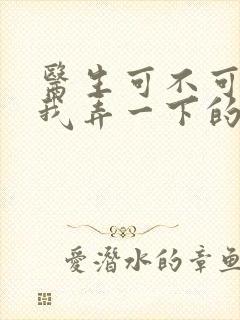 醫生可不可
我弄一下的
愛潛水的章魚